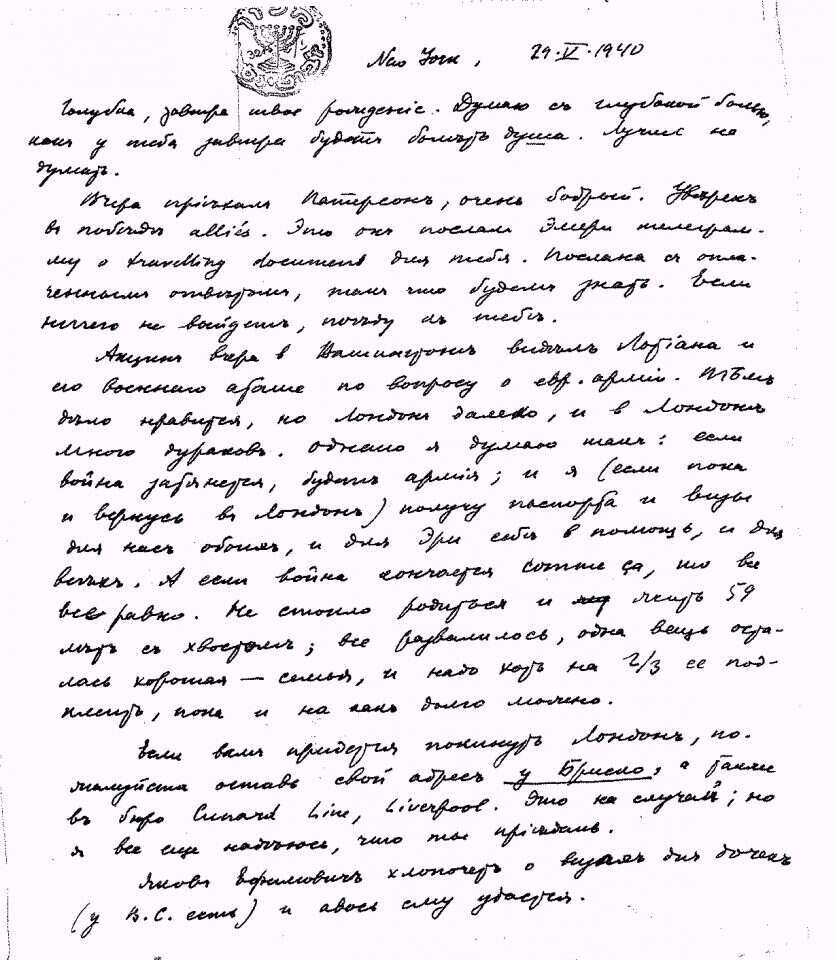 New York, 29.VI.1940
Голубка, завтра твое рожденіе. Думаю съ глубокой болью,
какъ у тебя завтра будетъ болѣть душа. Лучше не
думать.
Вчера пріѣхалъ Патерсонъ, очень бодрый. Увѣренъ
въ побѣдѣ alliés. Это онъ послалъ Эмери телеграм-
му о travelling document для тебя. Послана съ опла-
ченнымъ отвѣтомъ, такъ что будемъ знать. Если
ничего не выйдетъ, поѣду къ тебѣ.
Акцинъ вчера в Вашингтонѣ видѣлъ Лотіана и
его военнаго аташе по вопросу о евр. арміи. Тѣмъ
дѣло нравится, но Лондонъ далеко, и в Лондонѣ
много дураковъ. Однако я думаю такъ: если
война затянется, будетъ армія; и я (если пока
и вернусь въ Лондонъ) получу паспорта и визы
для насъ обоихъ, и для Эри себѣ в помощь, и для
всѣхъ. А если война кончается comme ça, то все
все равно. Не стоило родиться и жить 59
лѣтъ съ хвостомъ; все развалилось, одна вещь оста-
лась хорошая — семья, и надо хоть на 2/3 ее под-
клеить, пока и на какъ долго можно.
Если вамъ придется покинуть Лондонъ, по-
жалуйста оставь свой адресъ у Бриско, а также
въ бюро Cunard Line, Liverpool. Это на случай; но
я все еще надѣюсь, что ты пріѣдешь.
Яковъ Ефимовичъ хлопочетъ о визахъ для дочекъ
(у В.С. есть) и авось ему удастся.